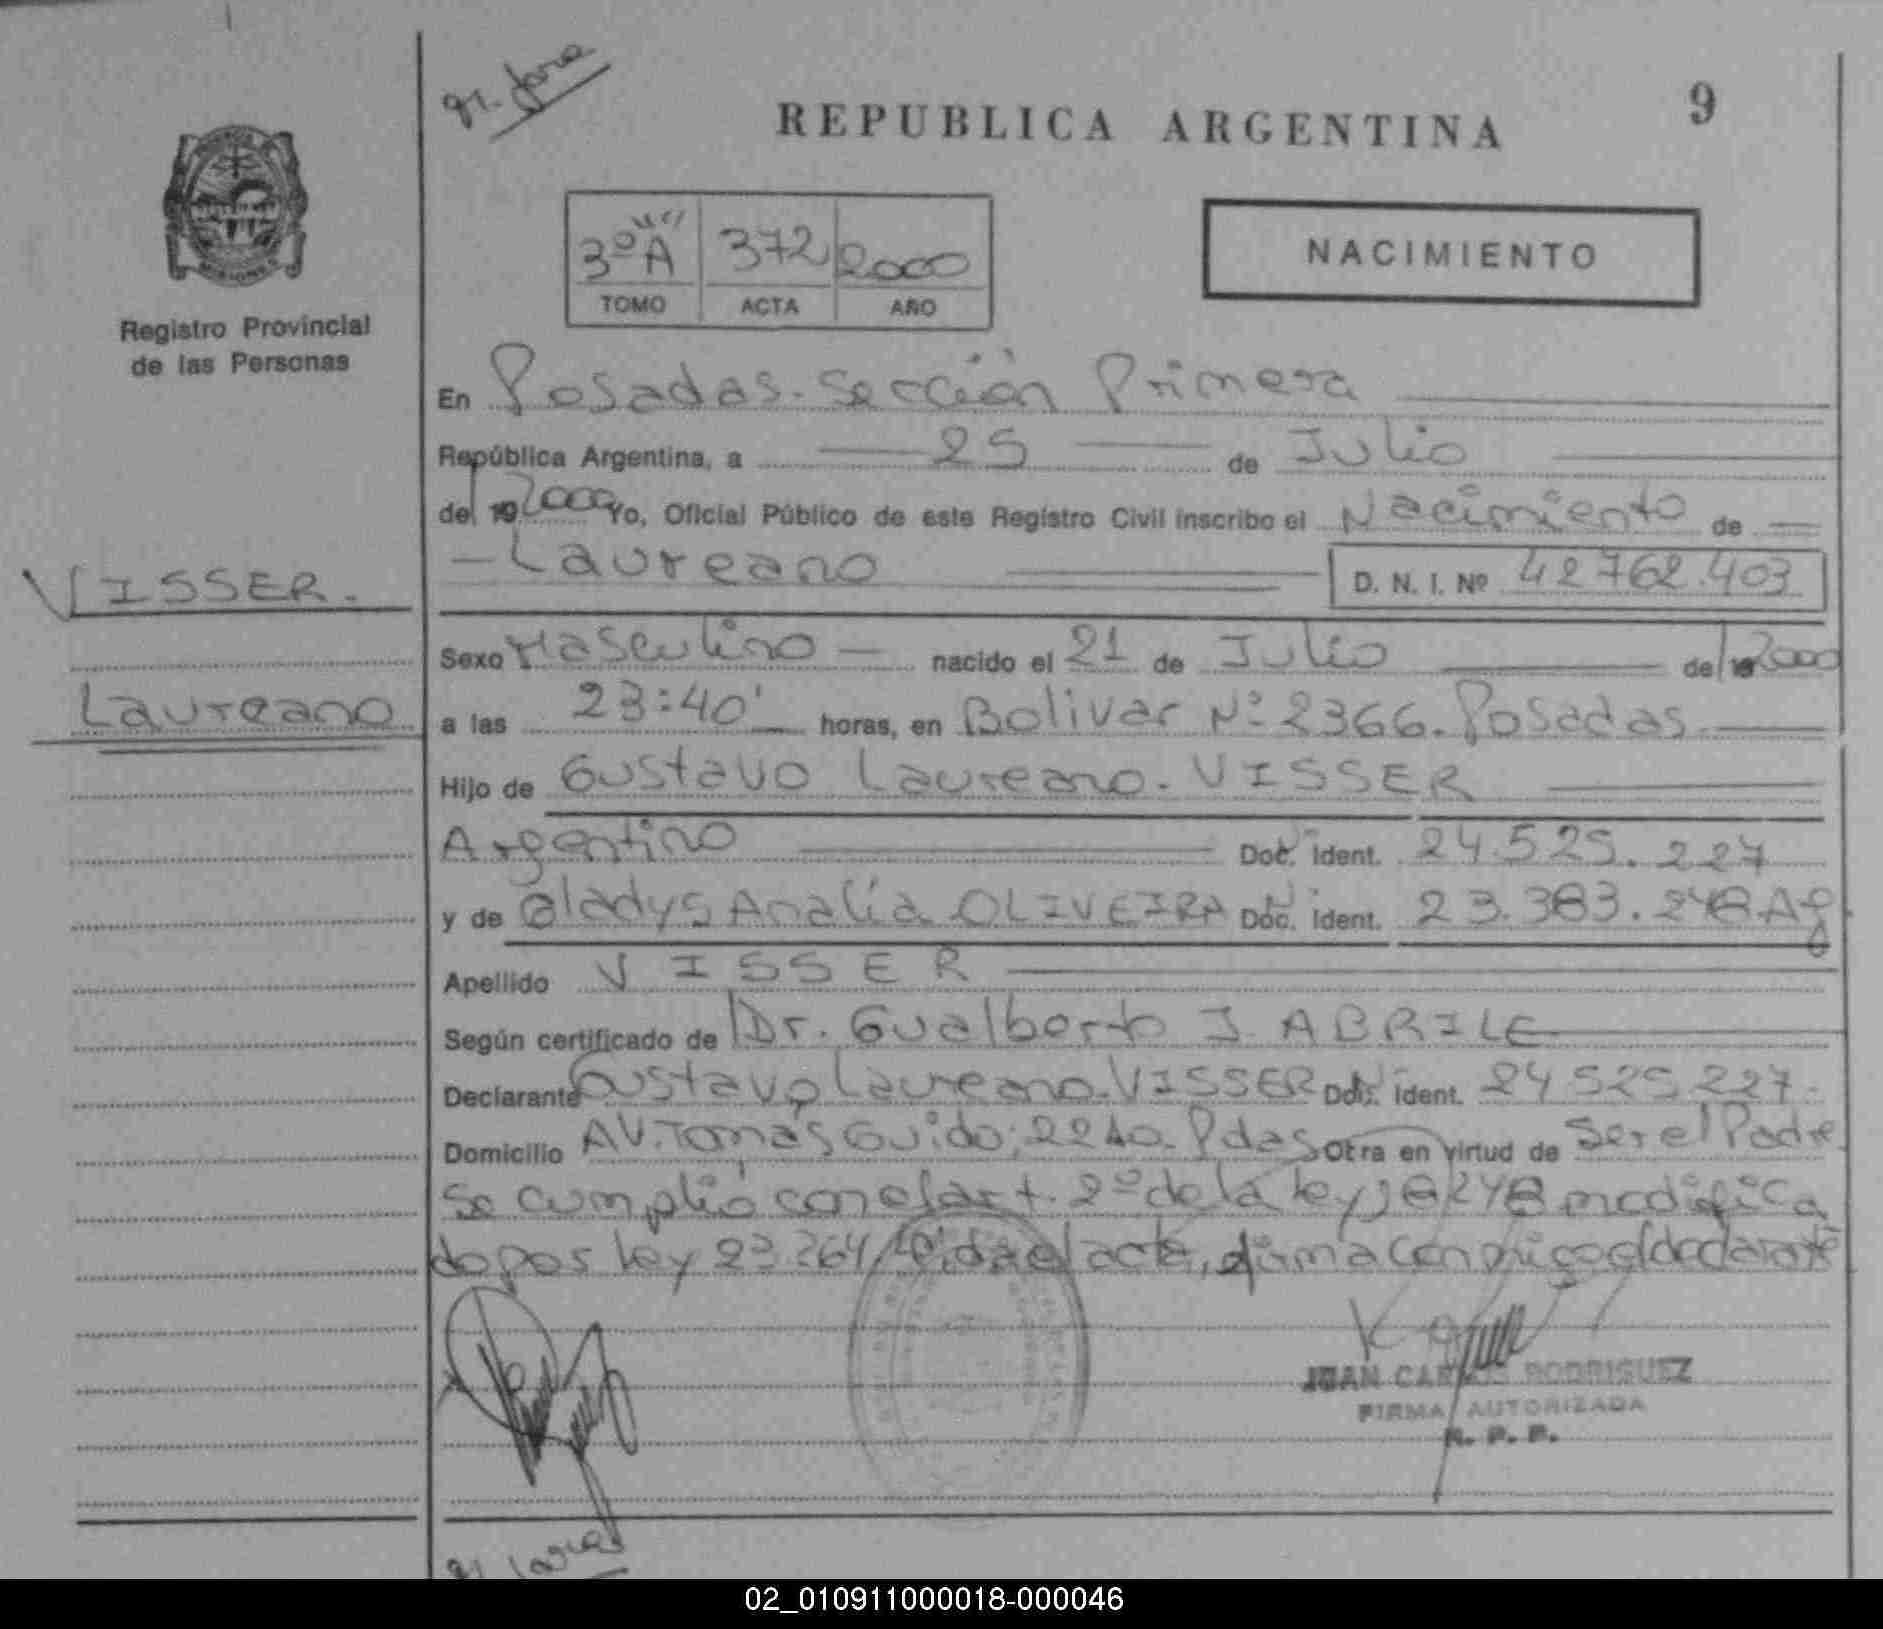 REPUBLICA ARGENTINA
9
3º "A" 372 2000
TOMO ACTA AÑO
NACIMIENTO
Registro Provincial
de las Personas
En Posadas. Sección Primera
República Argentina, a 25 de Julio
del 19 2000 Yo, Oficial Público de este Registro Civil inscribo el Nacimiento de
Laureano D. N. I. Nº 42762.403
VISSER.
Laureano
Sexo Masculino nacido el 21 de Julio de 19 2000
a las 23:40' horas, en Bolivar Nº 2366. Posadas
Hijo de Gustavo Laureano. VISSER
Argentino Doc. Ident. 24.525.227
y de Gladys Analía OLIVEIRA Doc. Ident. 23.383.248 Ag
Apellido VISSER
Según certificado de Dr. Gualberto J. ABRILE
Declarante Gustavo Laureano. VISSER Doc. Ident. 24525227.
Domicilio AV. Tomás Guido, 2240. Pdas Otra en virtud de Ser el Padre
Se cumplió con el art. 2º de la ley 18248 modifica
do por ley 23.264, Leída el acta, firma conmigo el declarante
JUAN CARLOS RODRIGUEZ
FIRMA AUTORIZADA
R. P. P.
02_010911000018-000046